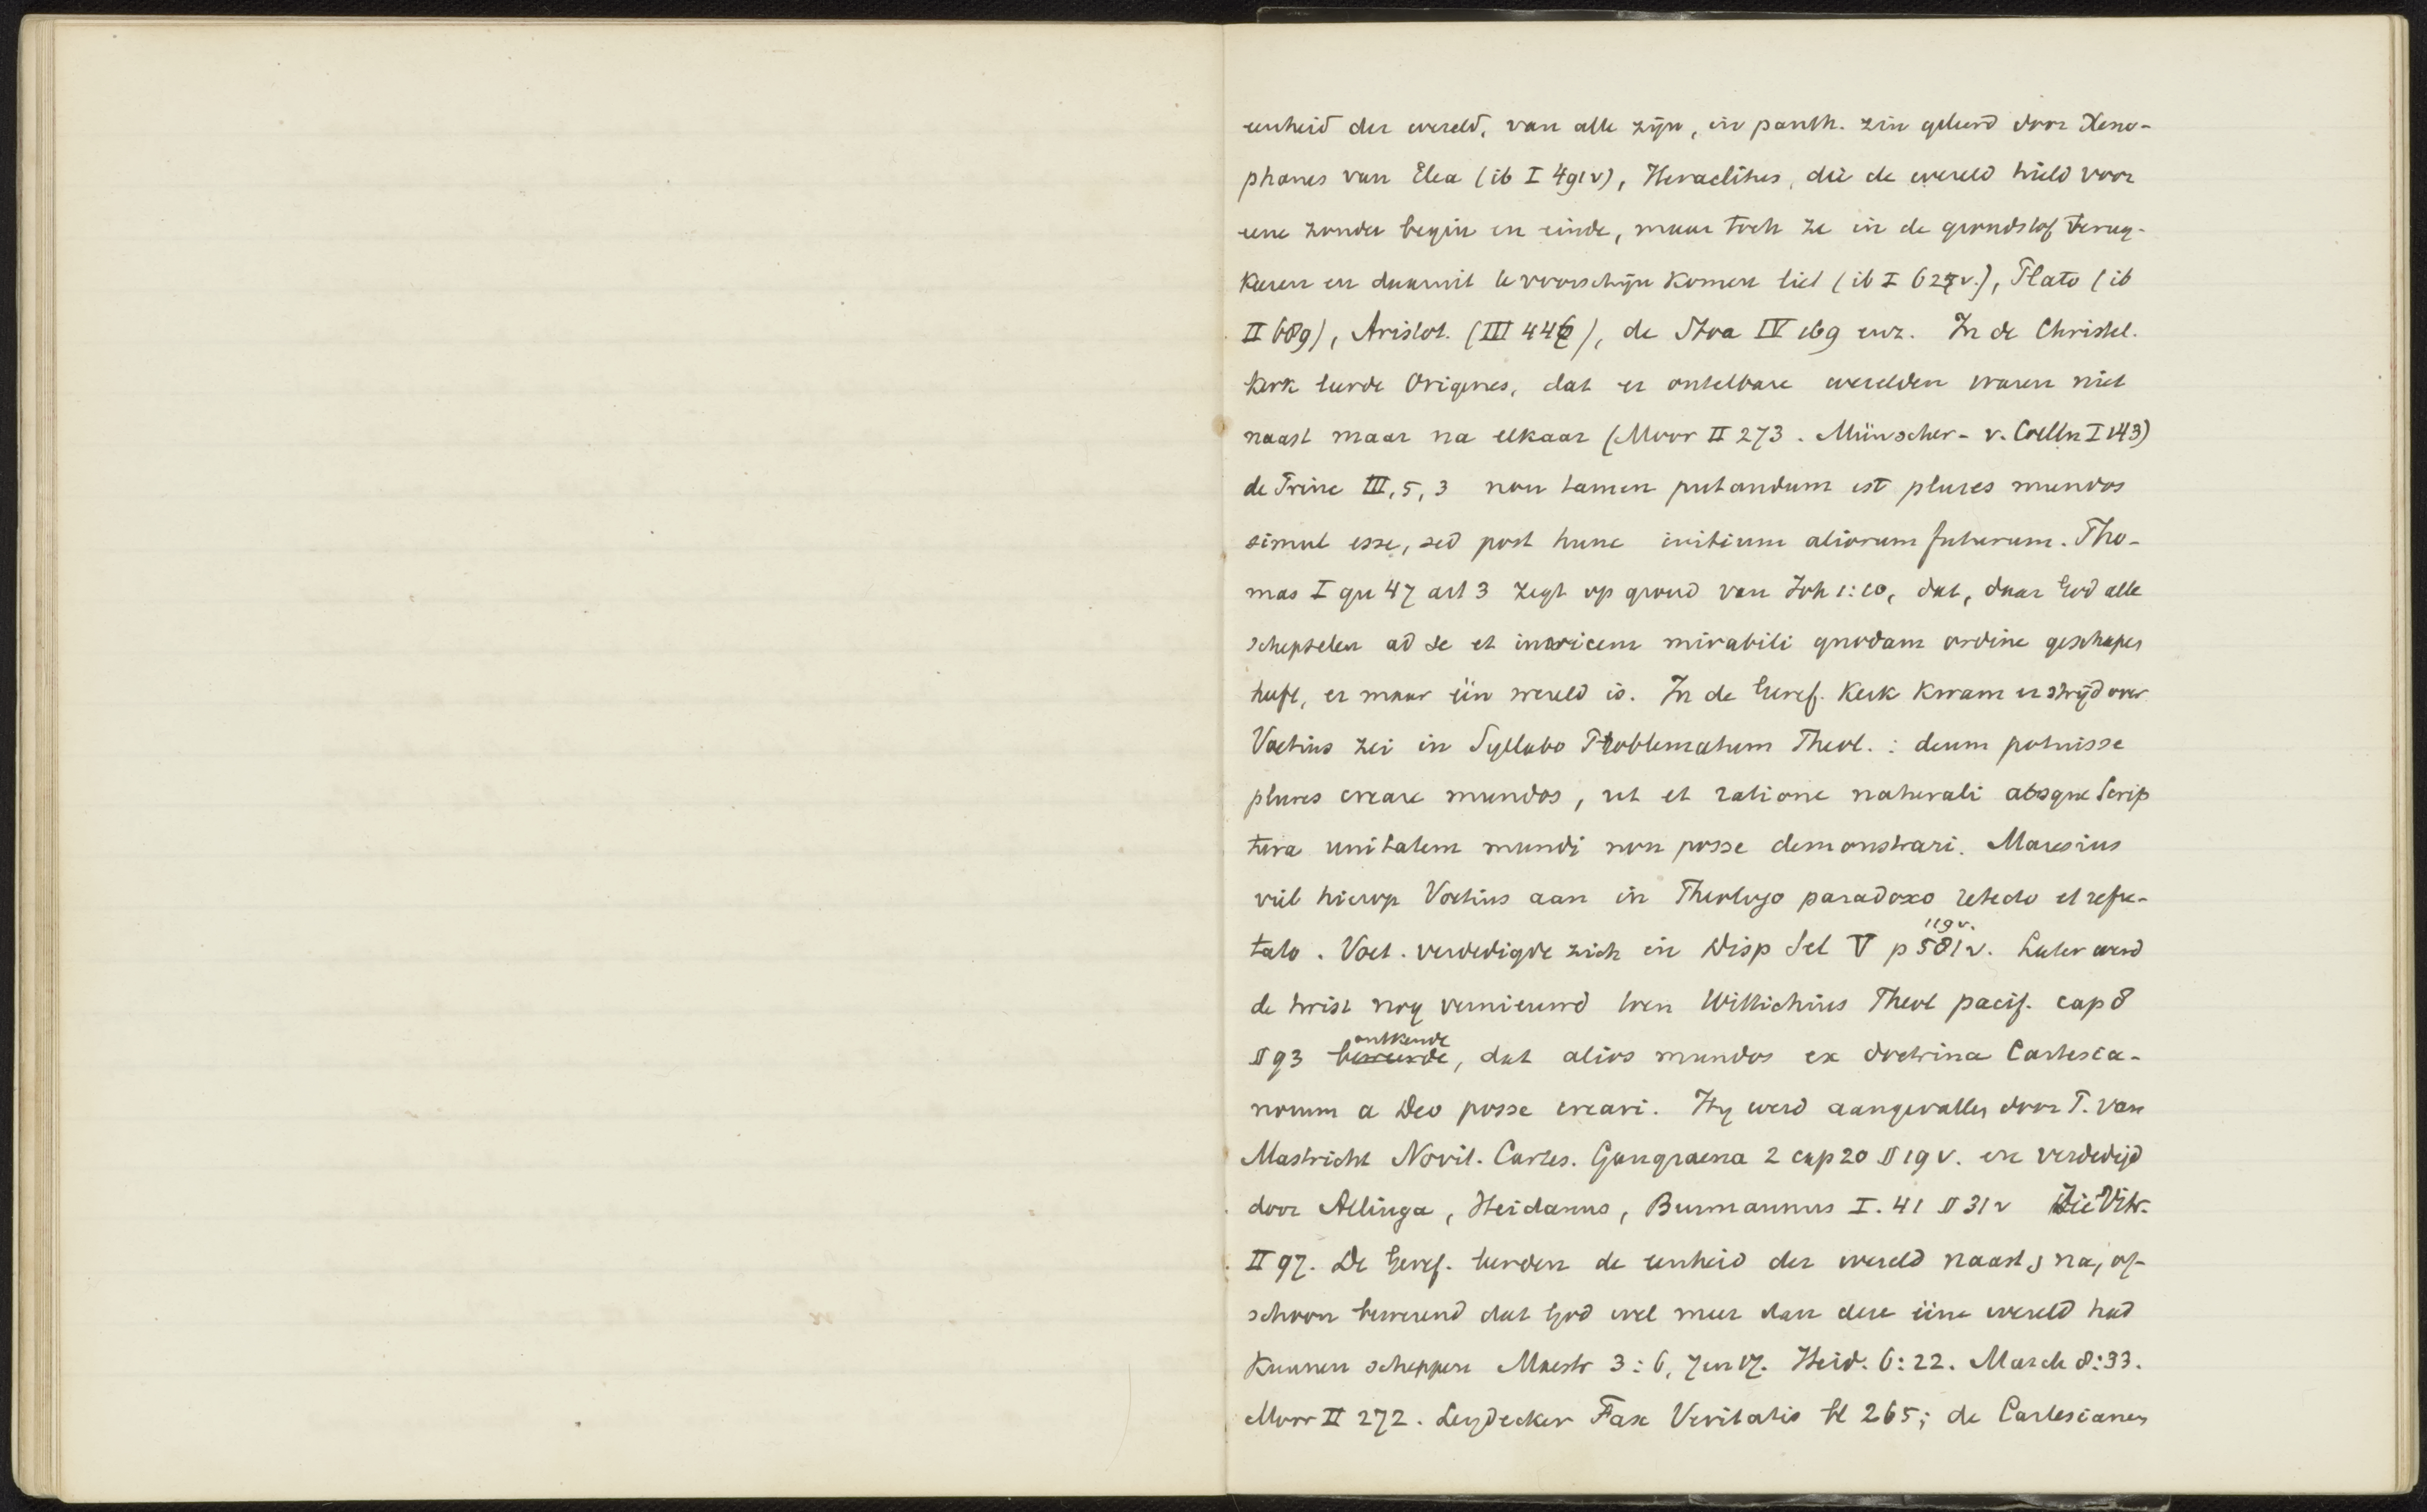 eenheid der wereld, van alle zijn, in panth. zin geleerd door Xeno-
phanes van Elea (ib I 491v), Heraclitus, die de wereld hield voor
eene zonder begin en einde, maar toch ze in de grondstof terug-
keeren en daaruit te voorschijn komen liet (ib I 627v.), Plato (ib
II 689), Aristot. (III 446), de Stoa IV 169 enz. In de Christel.
kerk leerde Origenes, dat er ontelbare werelden waren niet
naast maar na elkaar (Moor II 273. Münscher-v. Coelln I 143)
de Princ III, 5, 3 non tamen putandum est plures mundos
simul esse, sed post hunc initium aliorum futurum. Tho-
mas I qu 47 art 3 zegt op grond van Joh 1:10, dat, daar God alle
schepselen ad se et invicem mirabili quodam ordine geschapen
heeft, er maar één wereld is. In de Geref. Kerk kwam er strijd over
Voetius zei in Syllabo Problematum Theol.: deum potuisse
plures creare mundos, ut et ratione naturali absque Scrip
tura unitatem mundi non posse demonstrari. Maresius
viel hierop Voetius aan in Theologo paradoxo retecto et refu-
tato. Voet. verdedigde zich in Disp Sel V p 581v. 119v. Later werd
de twist nog vernieuwd toen Wittichius Theol pacif. cap 8
§ 93 beweerde ontkende, dat alios mundos ex doctrina Cartesia-
norum a Deo posse creari. Hij werd aangevallen door P. van
Mastricht Novit. Cartes. Gangraena 2 cap 20 § 19 v. en verdedigd
door Allinga, Heidanus, Burmannus I. 41 § 31v Zie Vitr.
II 97. De Geref. leerden de eenheid der wereld naast, na, of-
schoon bewerend dat God wel meer dan deze ééne wereld had
kunnen scheppen Mastr 3:6, 7 en 17. Heid. 6:22. Marck 8:33.
Moor II 272. Leydecker Fax Veritatis bl 265; de Cartesianen